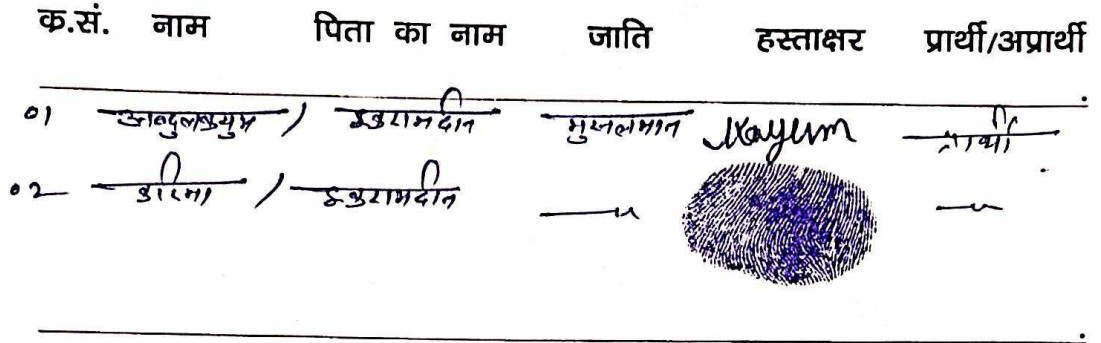 क्र.सं. नाम पिता का नाम जाति हस्ताक्षर प्रार्थी/अप्रार्थी
01 अब्दुलकयुम / इकरामदीन मुसलमान Kayum प्रार्थी
02 / इकरामदीन —〃 —〃